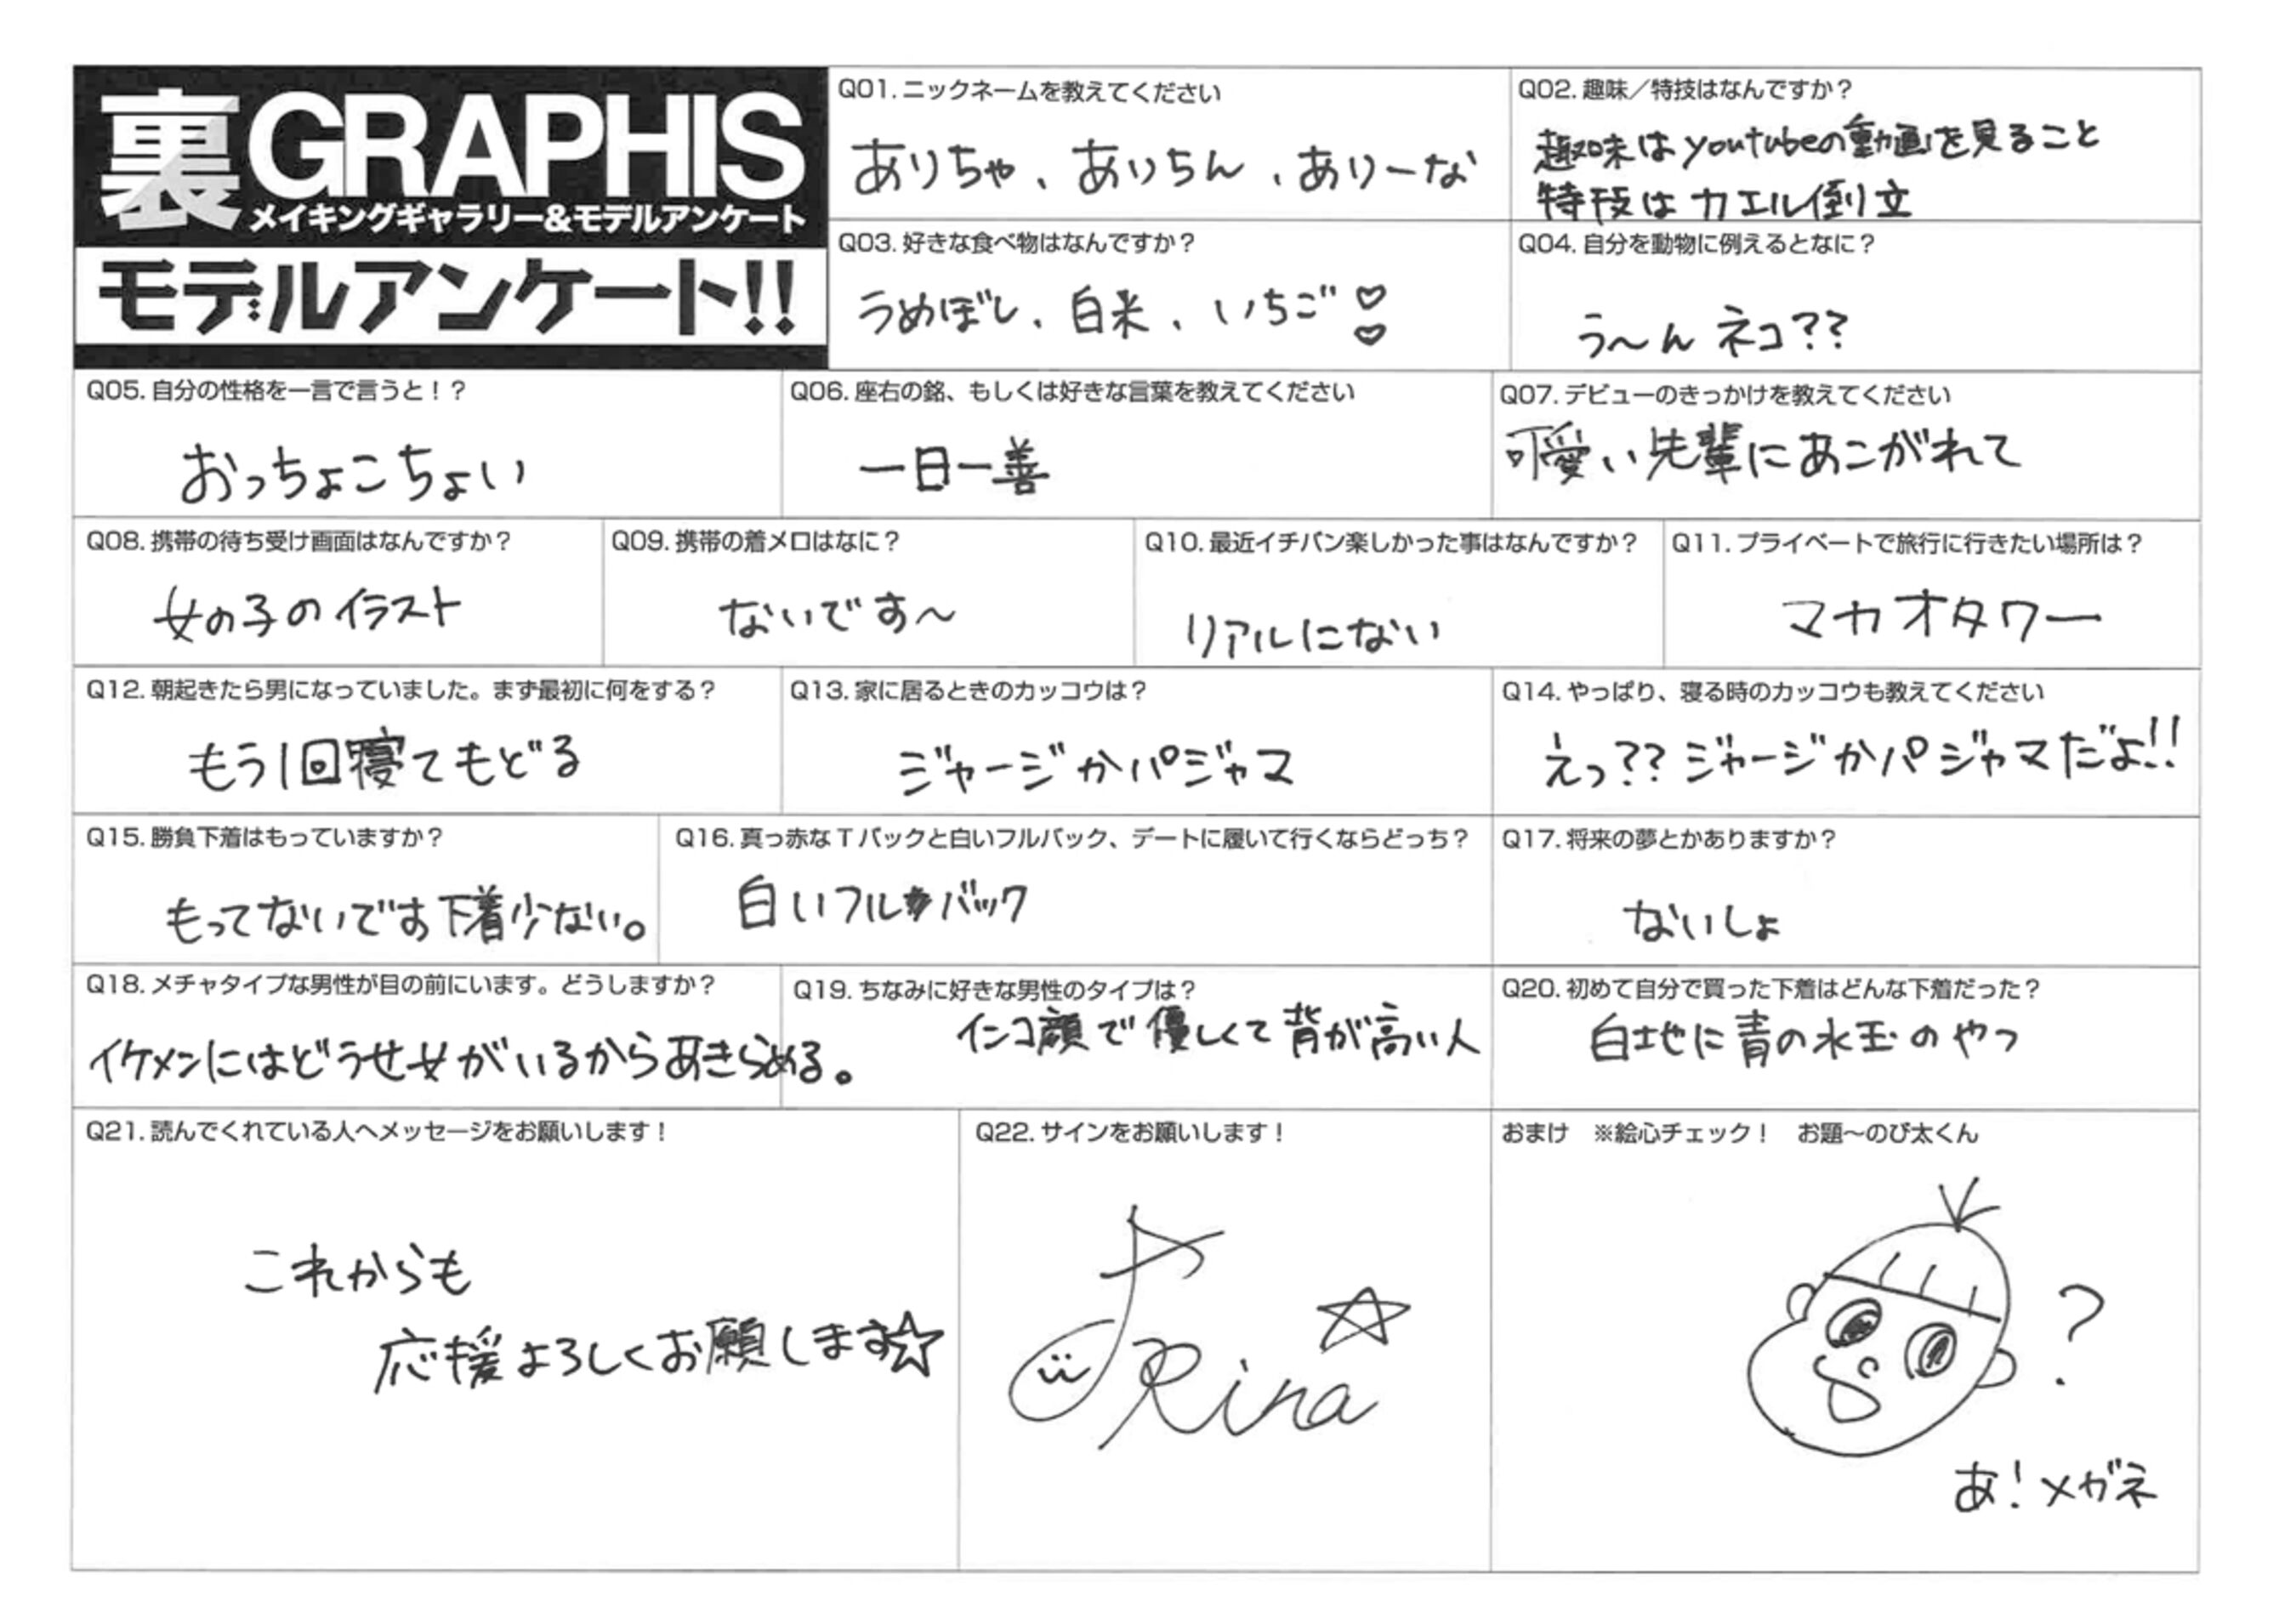 裏GRAPHIS
メイキングギャラリー&モデルアンケート
モデルアンケート!!
Q01.ニックネームを教えてください
ありちゃ、ありちん、ありーな
Q02.趣味／特技はなんですか？
趣味はyoutubeの動画を見ること
特技はカエル倒立
Q03.好きな食べ物はなんですか？
うめぼし、白米、いちご♡♡
Q04.自分を動物に例えるとなに？
う〜んネコ??
Q05.自分の性格を一言で言うと！？
おっちょこちょい
Q06.座右の銘、もしくは好きな言葉を教えてください
一日一善
Q07.デビューのきっかけを教えてください
可愛い先輩にあこがれて
Q08.携帯の待ち受け画面はなんですか？
女の子のイラスト
Q09.携帯の着メロはなに？
ないです〜
Q10.最近イチバン楽しかった事はなんですか？
リアルにない
Q11.プライベートで旅行に行きたい場所は？
マカオタワー
Q12.朝起きたら男になっていました。まず最初に何をする？
もう1回寝てもどる
Q13.家に居るときのカッコウは？
ジャージかパジャマ
Q14.やっぱり、寝る時のカッコウも教えてください
えっ??ジャージかパジャマだよ!!
Q15.勝負下着はもっていますか？
もってないです下着少ない。
Q16.真っ赤なTバックと白いフルバック、デートに履いて行くならどっち？
白いフルバック
Q17.将来の夢とかありますか？
ないしょ
Q18.メチャタイプな男性が目の前にいます。どうしますか？
イケメンにはどうせ女がいるからあきらめる。
Q19.ちなみに好きな男性のタイプは？
インコ顔で優しくて背が高い人
Q20.初めて自分で買った下着はどんな下着だった？
白地に青の水玉のやつ
Q21.読んでくれている人へメッセージをお願いします！
これからも
応援よろしくお願します☆
Q22.サインをお願いします！
Arina☆
おまけ　※絵心チェック！　お題〜のび太くん
?
あ!メガネ